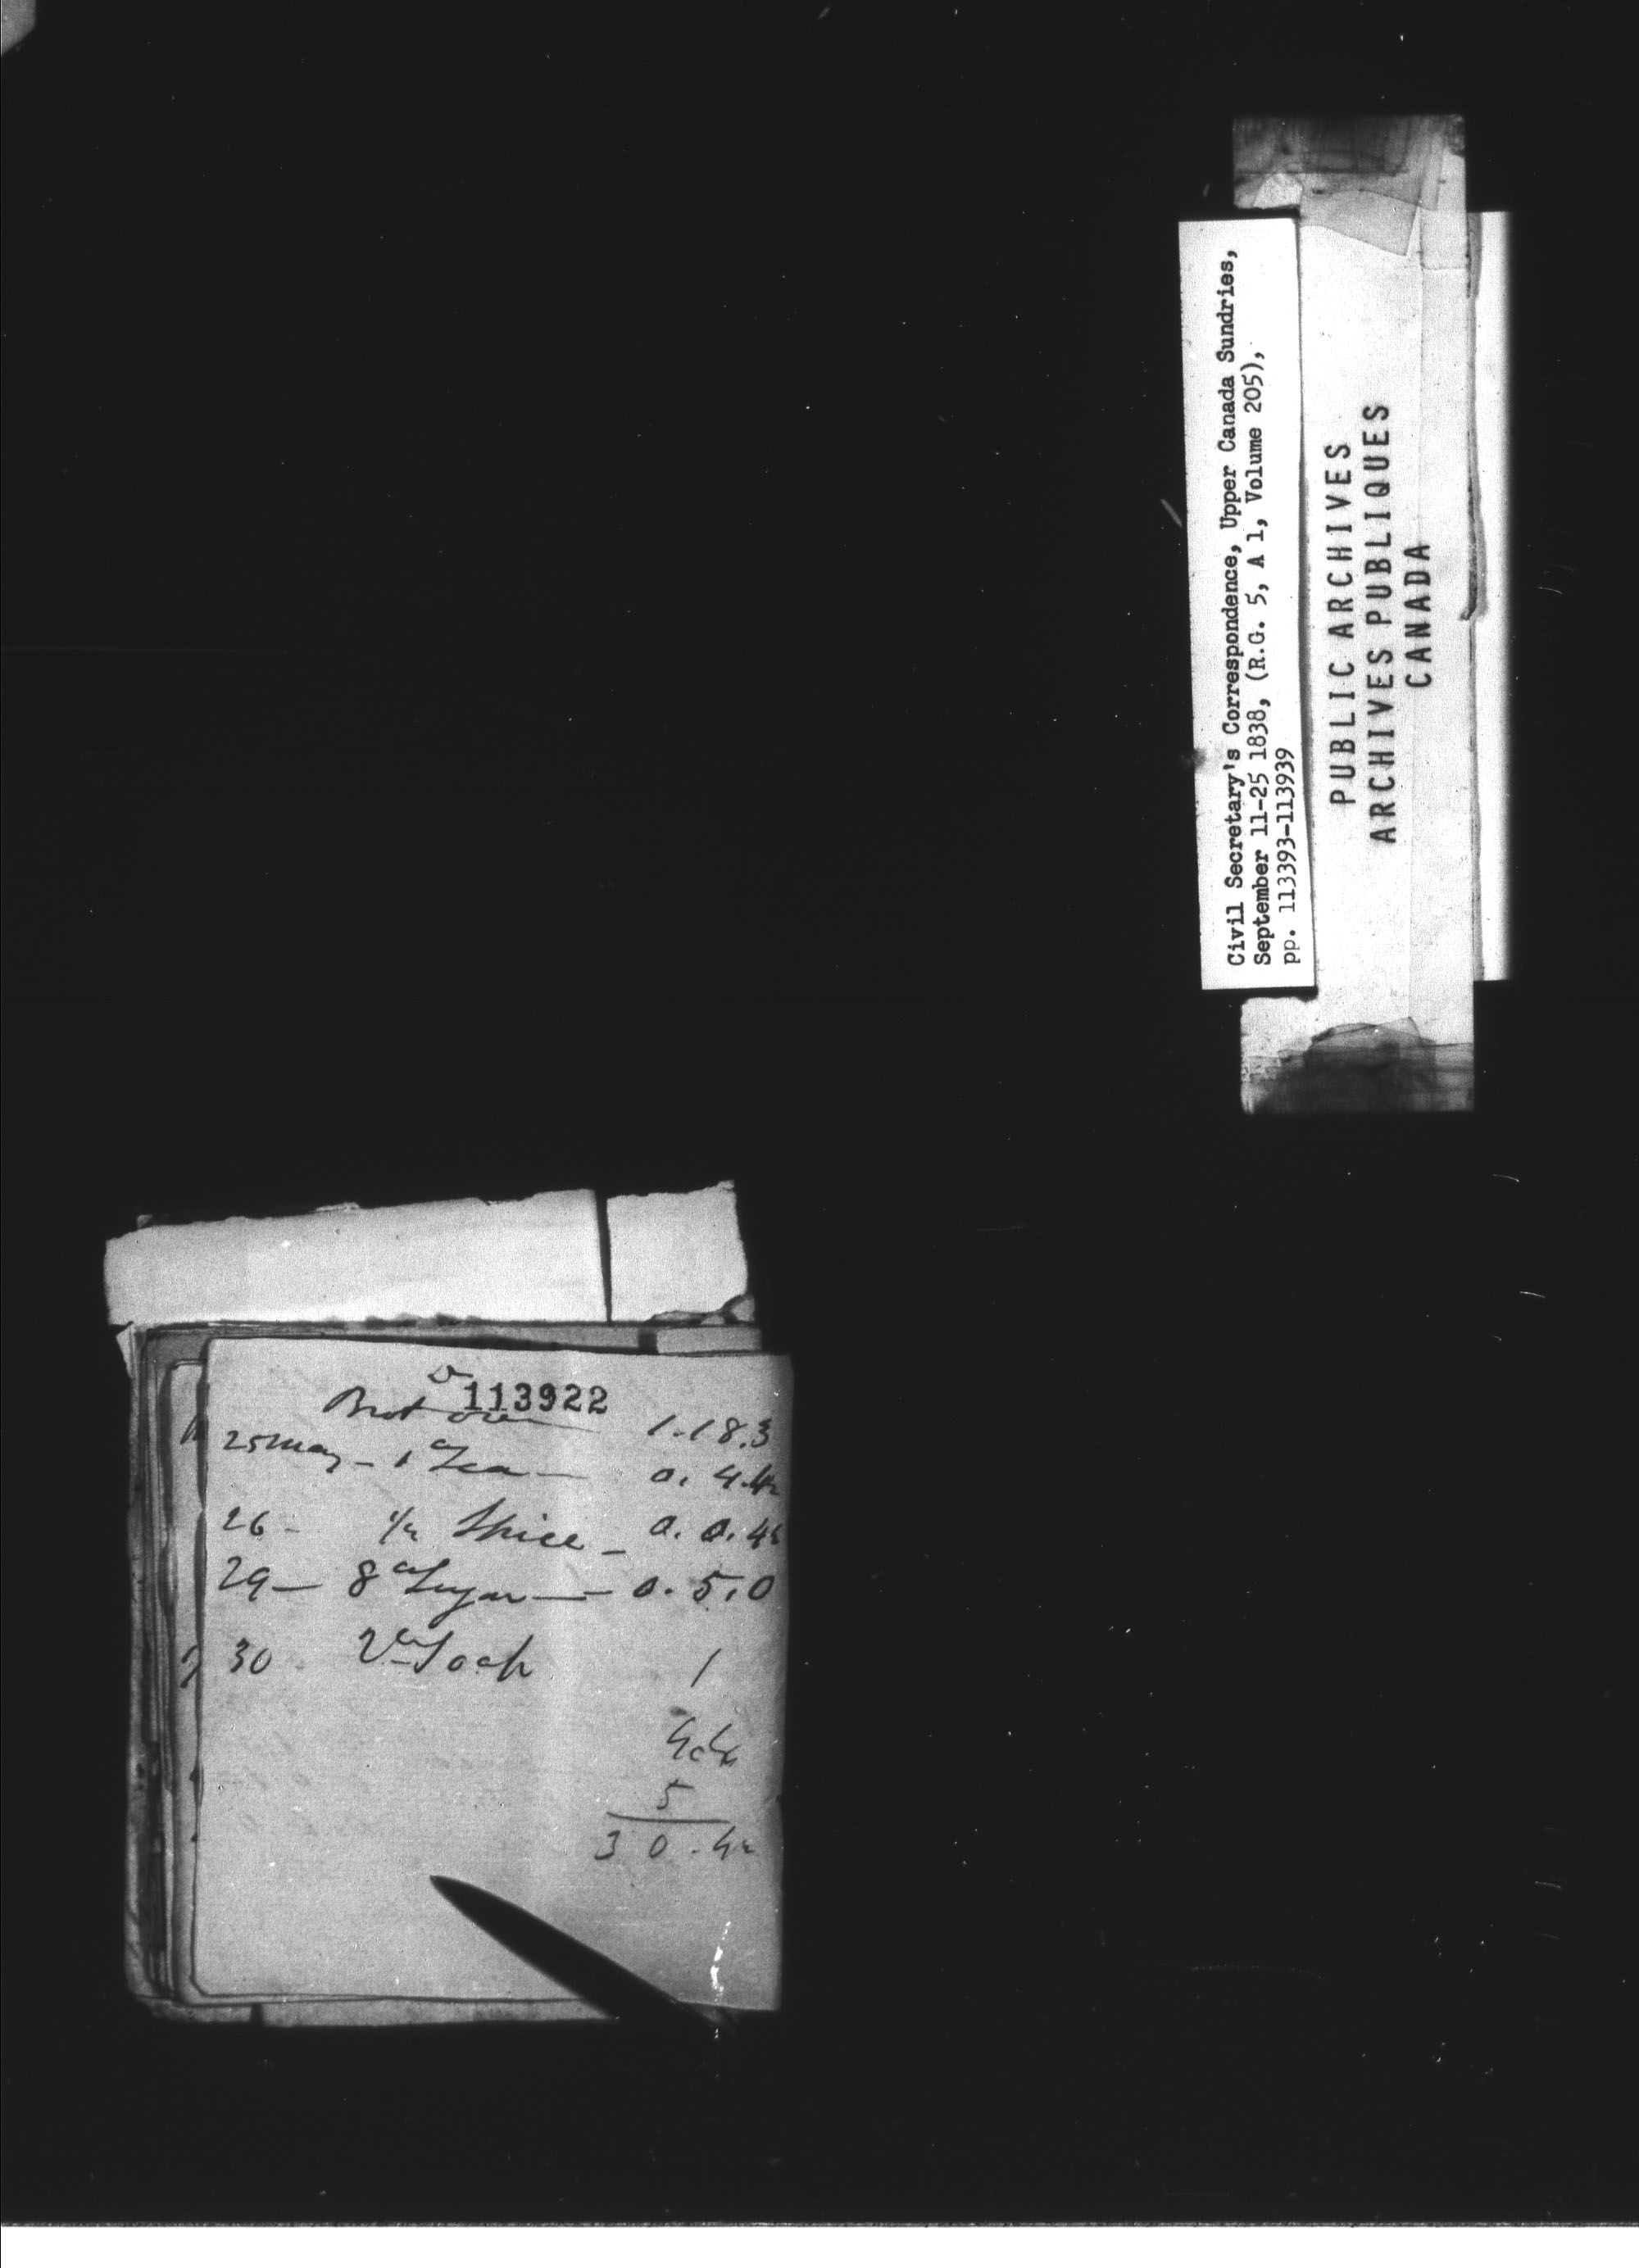 Civil Secretary's Correspondence, Upper Canada Sundries,
September 11-25 1838, (R.G. 5, A 1, Volume 205),
pp. 113393-113939
PUBLIC ARCHIVES
ARCHIVES PUBLIQUES
CANADA
113922
Brot over 1.18.3
25 May - 1 Tea - 0. 4.4½
26 - ½ Spice - 0. 0.4½
29 - 8 Sugar - 0. 5.0
30 2 Soap 1
5
3 0.4½